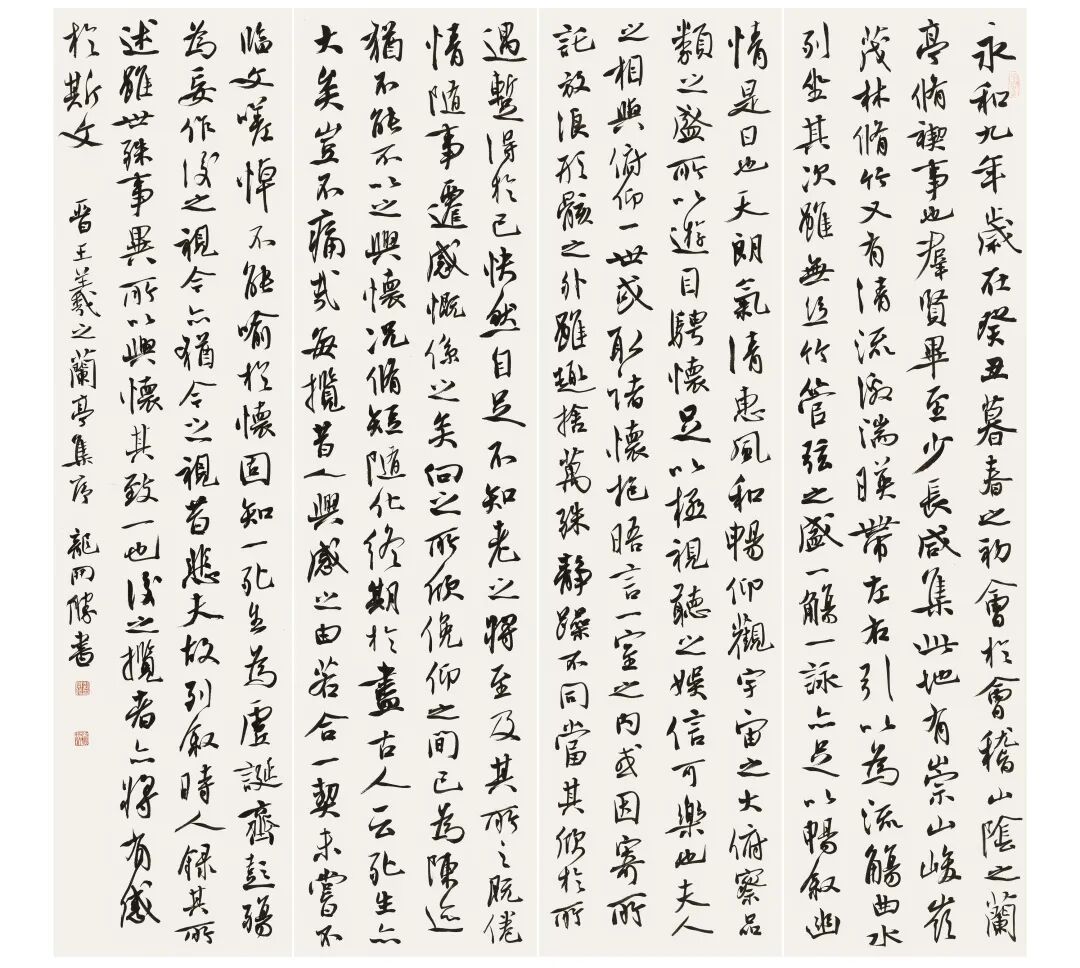 永和九年歲在癸丑暮春之初會於會稽山陰之蘭
亭脩禊事也羣賢畢至少長咸集此地有崇山峻嶺
茂林脩竹又有清流激湍暎帶左右引以為流觴曲水
列坐其次雖無絲竹管弦之盛一觴一詠亦足以暢敘幽
情是日也天朗氣清惠風和暢仰觀宇宙之大俯察品
類之盛所以遊目騁懷足以極視聽之娛信可樂也夫人
之相與俯仰一世或取諸懷抱晤言一室之內或因寄所
託放浪形骸之外雖趣捨萬殊靜躁不同當其欣於所
遇暫得於己快然自足不知老之將至及其所之既倦
情隨事遷感慨係之矣向之所欣俛仰之間已為陳迹
猶不能不以之興懷況脩短隨化終期於盡古人云死生亦
大矣豈不痛哉每攬昔人興感之由若合一契未嘗不
臨文嗟悼不能喻於懷固知一死生為虛誕齊彭殤
為妄作後之視今亦猶今之視昔悲夫故列敘時人錄其所
述雖世殊事異所以興懷其致一也後之攬者亦將有感
於斯文
晉王羲之蘭亭集序 龍開勝書